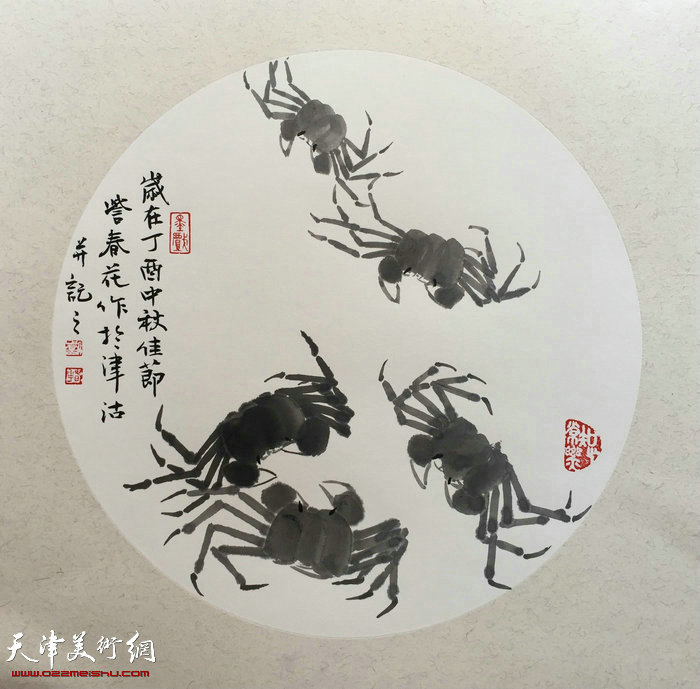 歲在丁酉中秋佳節
訾春花作於津沽
并記之
知足常樂
天津美術網
www.022meishu.com